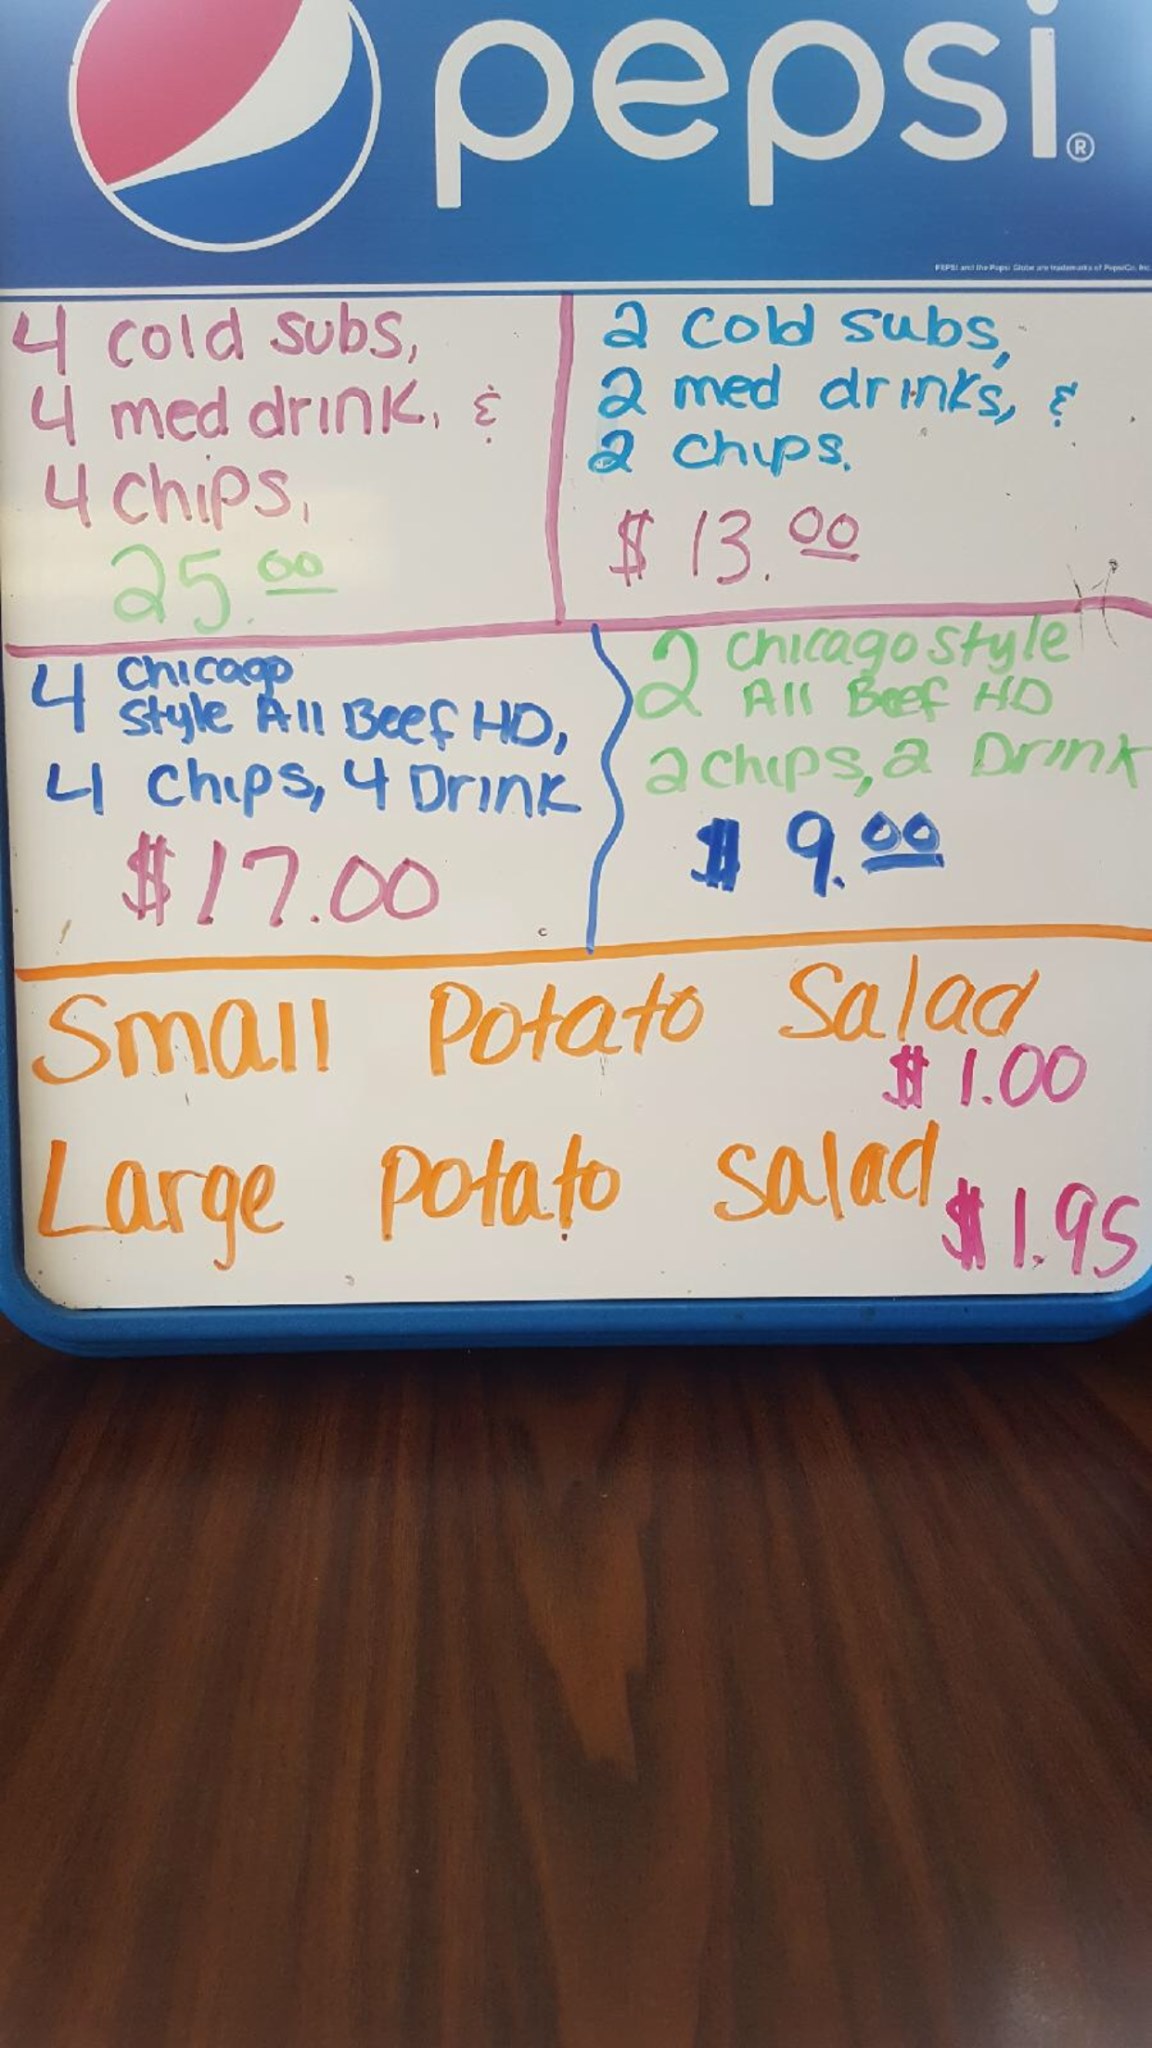 pepsi®
PEPSI and the Pepsi Globe are trademarks of PepsiCo, Inc.
4 cold subs,
4 med drink, &
4 chips,
25.00
2 cold subs,
2 med drinks, &
2 chips.
$ 13.00
4 Chicago
Style All Beef HD,
4 Chips, 4 Drink
$17.00
2 Chicago Style
All Beef HD
2 chips, 2 Drink
$ 9.00
Small Potato Salad
$1.00
Large Potato Salad
$1.95